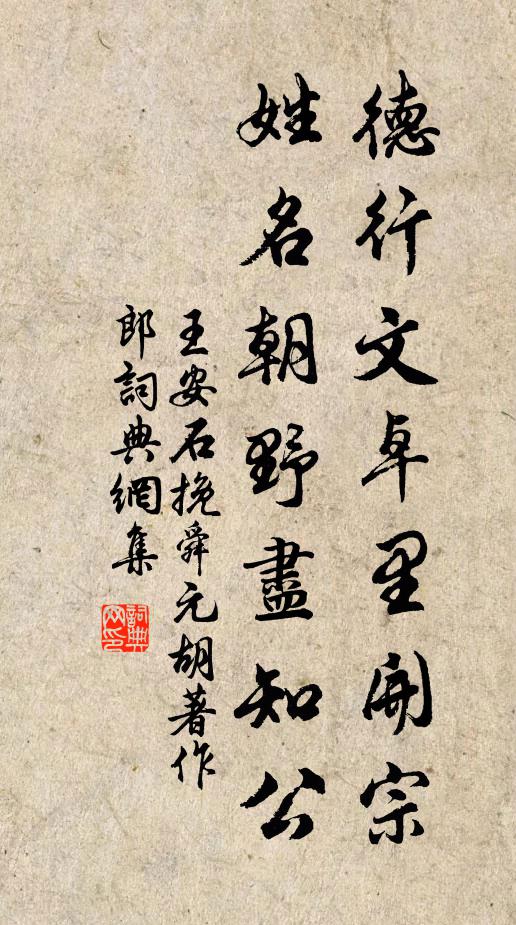 德行文卓里開宗
姓名朝野盡知公
王安石挽舜元胡著作
郎詞典網集
詞典网印